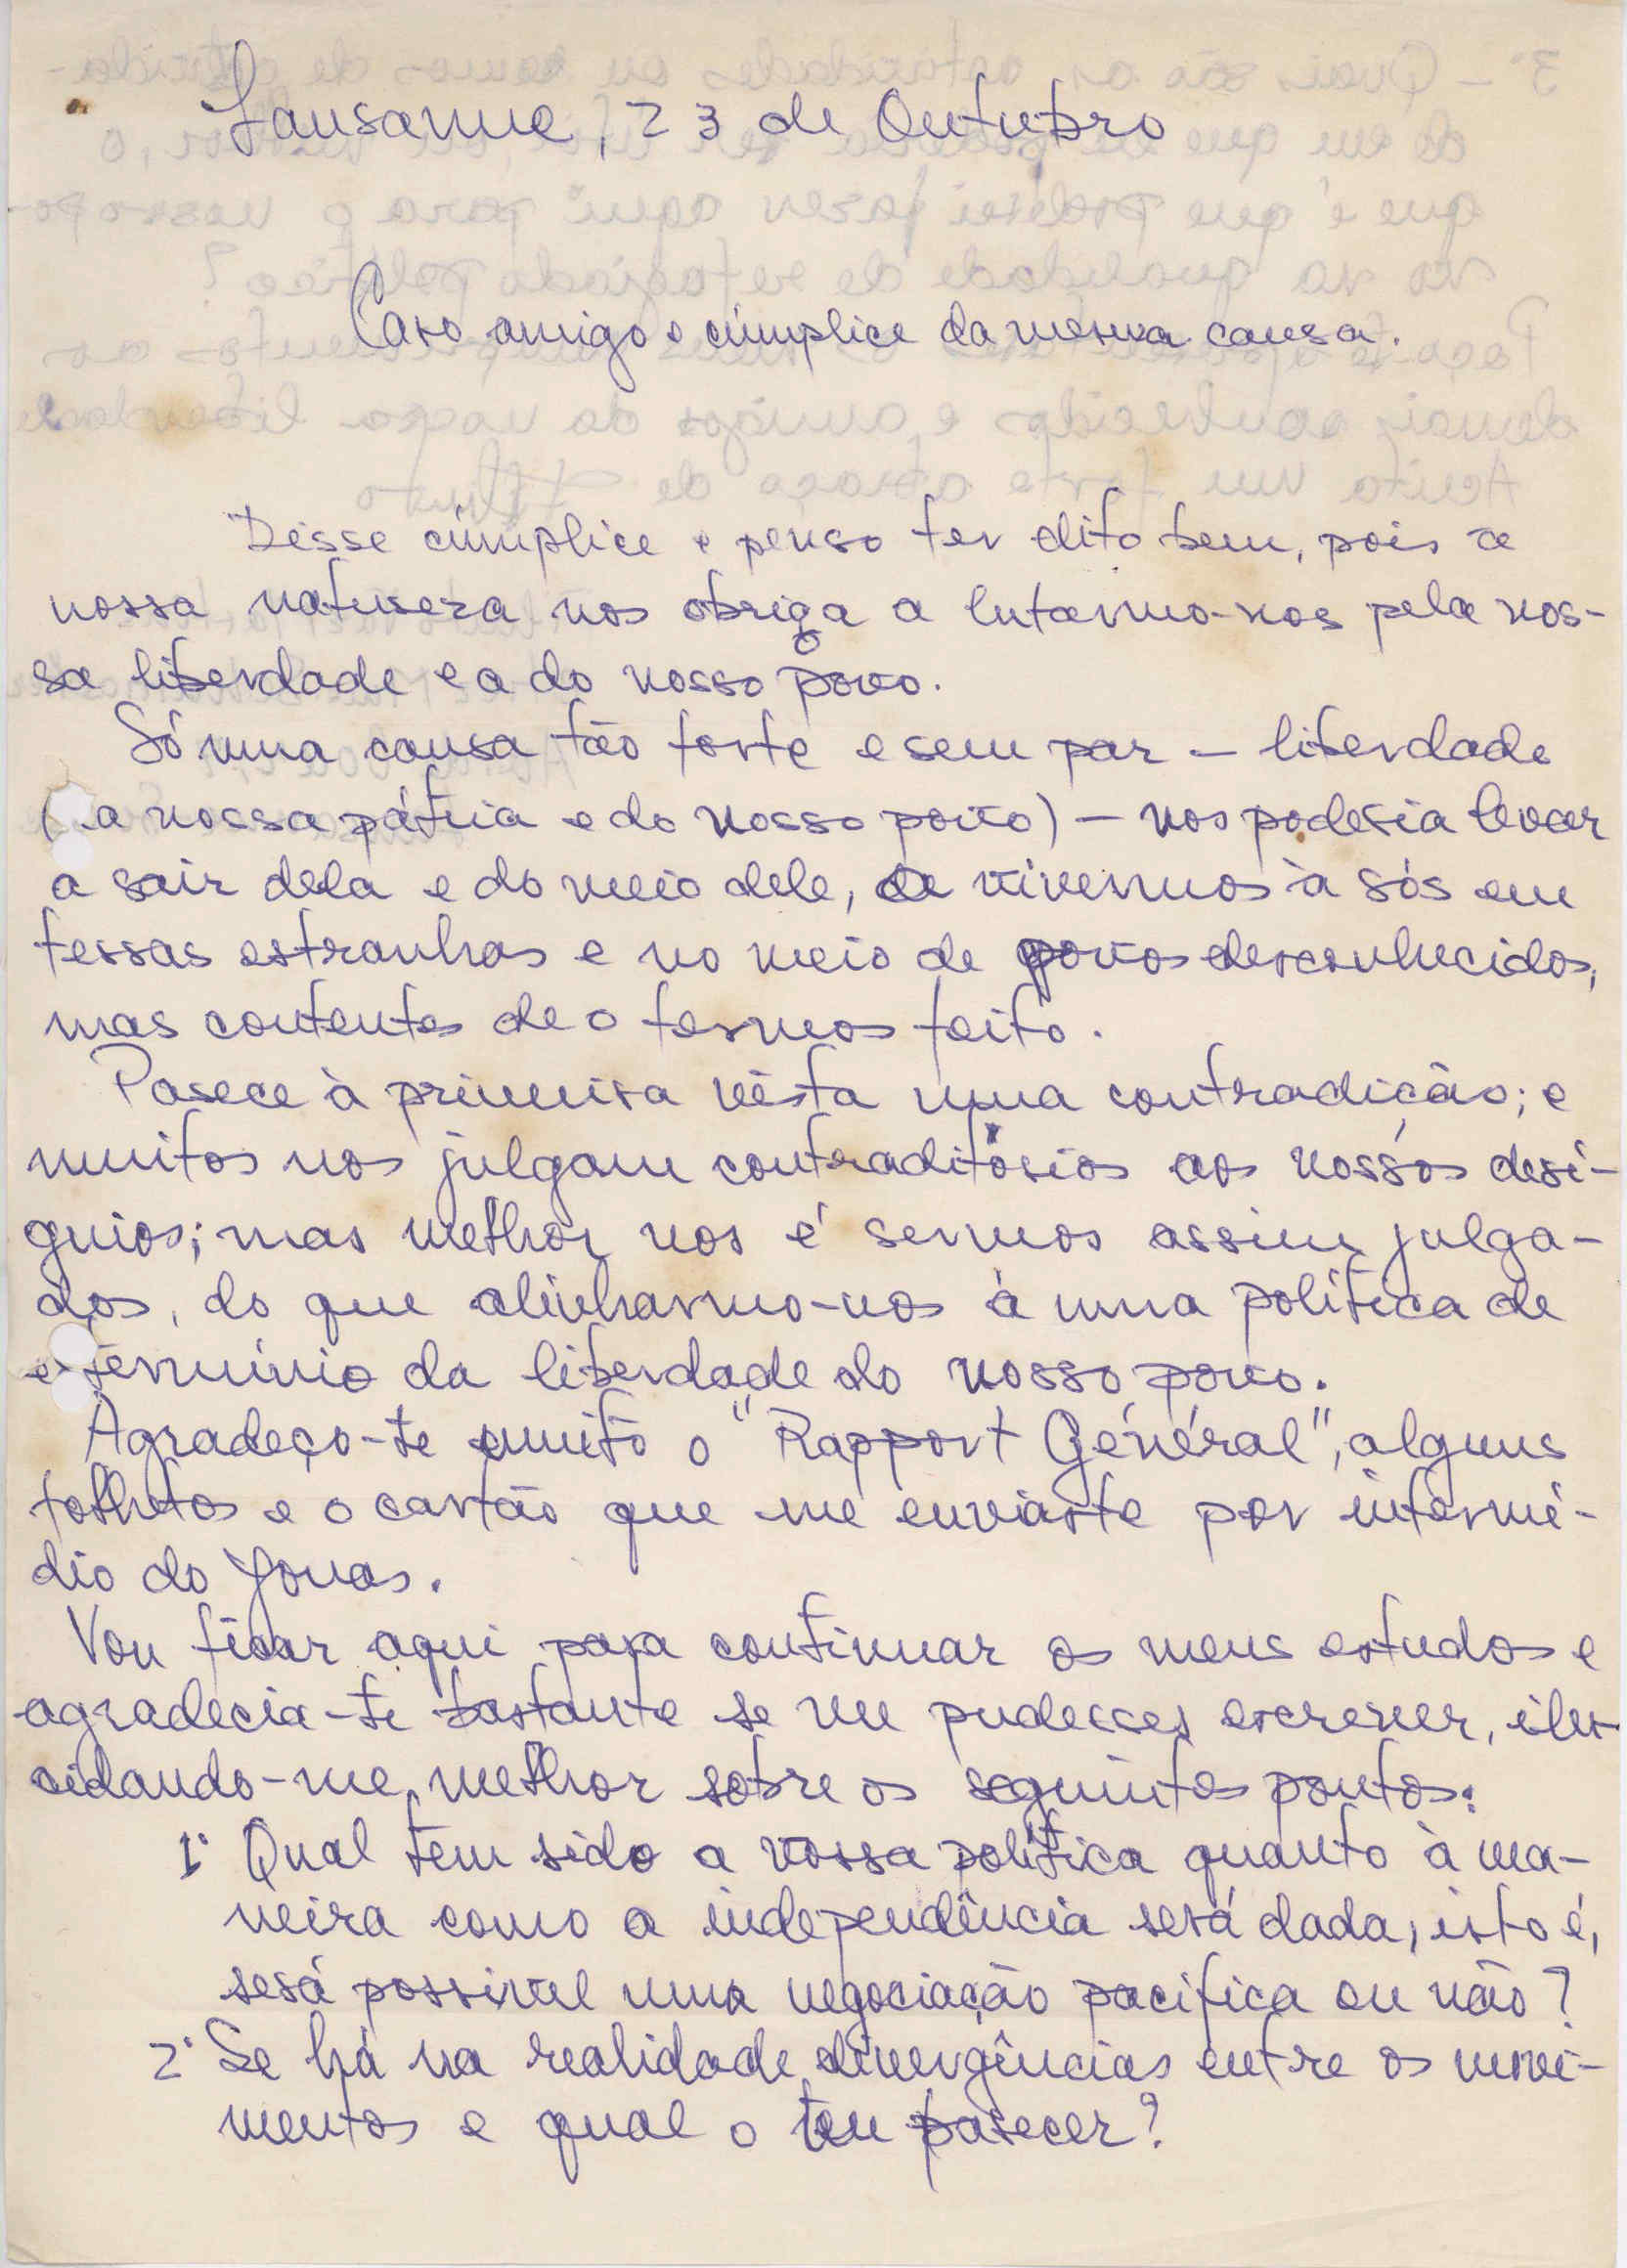 Lausanne, 23 de Outubro
Caro amigo e cúmplice da mesma causa.
Disse cúmplice e penso ter dito bem, pois a
nossa natureza nos obriga a lutarmo-nos pela nos-
sa liberdade e a do nosso povo.
Só uma causa tão forte e sem par – liberdade
(a nossa pátria e do nosso povo) – nos poderia levar
a sair dela e do meio dele, a vivermos à sós em
terras estranhas e no meio de povos desconhecidos,
mas contentes de o termos feito.
Parece à primeira vista uma contradição; e
muitos nos julgam contraditórios aos nossos desí-
gnios; mas melhor nos é sermos assim julga-
dos, do que alinharmo-nos à uma política de
extermínio da liberdade do nosso povo.
Agradeço-te muito o "Rapport Général", alguns
folhetos e o cartão que me enviaste por intermé-
dio do Jonas.
Vou ficar aqui para continuar os meus estudos e
agradecia-te bastante se me pudesses escrever, elu-
cidando-me melhor sobre os seguintes pontos:
1º Qual tem sido a vossa política quanto à ma-
neira como a independência será dada, isto é,
será possível uma negociação pacifica ou não?
2º Se há na realidade divergências entre os movi-
mentos e qual o teu parecer?